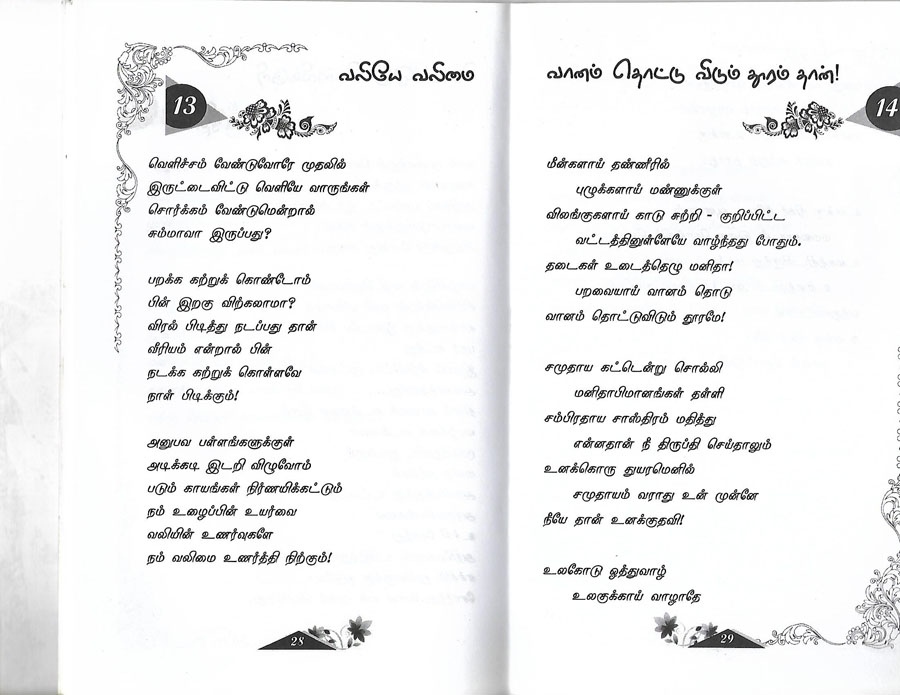 வலியே வலிமை
13
வெளிச்சம் வேண்டுவோரே முதலில்
இருட்டைவிட்டு வெளியே வாருங்கள்
சொர்க்கம் வேண்டுமென்றால்
சும்மாவா இருப்பது?
பறக்க கற்றுக் கொண்டோம்
பின் இறகு விற்கலாமா?
விரல் பிடித்து நடப்பது தான்
வீரியம் என்றால் பின்
நடக்க கற்றுக் கொள்ளவே
நாள் பிடிக்கும்!
அனுபவ பள்ளங்களுக்குள்
அடிக்கடி இடறி விழுவோம்
படும் காயங்கள் நிர்ணயிக்கட்டும்
நம் உழைப்பின் உயர்வை
வலியின் உணர்வுகளே
நம் வலிமை உணர்த்தி நிற்கும்!
28
வானம் தொட்டு விடும் தூரம் தான்!
14
மீன்களாய் தண்ணீரில்
புழுக்களாய் மண்ணுக்குள்
விலங்குகளாய் காடு சுற்றி - குறிப்பிட்ட
வட்டத்தினுள்ளேயே வாழ்ந்தது போதும்.
தடைகள் உடைத்தெழு மனிதா!
பறவையாய் வானம் தொடு
வானம் தொட்டுவிடும் தூரமே!
சமுதாய கட்டென்று சொல்லி
மனிதாபிமானங்கள் தள்ளி
சம்பிரதாய சாஸ்திரம் மதித்து
என்னதான் நீ திருப்தி செய்தாலும்
உனக்கொரு துயரமெனில்
சமுதாயம் வராது உன் முன்னே
நீயே தான் உனக்குதவி!
உலகோடு ஒத்துவாழ்
உலகுக்காய் வாழாதே
29